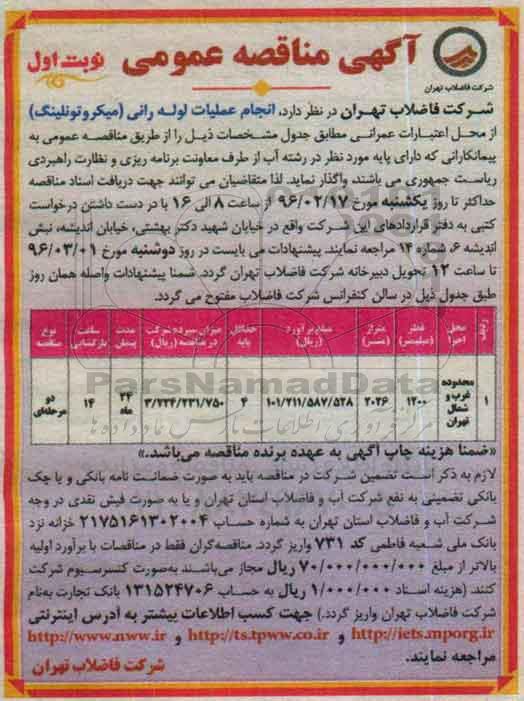 آگهی مناقصه عمومی
نوبت اول
شرکت فاضلاب تهران
شرکت فاضلاب تهران در نظر دارد، انجام عملیات لوله رانی (میکروتونلینگ)
از محل اعتبارات عمرانی مطابق جدول مشخصات ذیل را از طریق مناقصه عمومی به
پیمانکارانی که دارای پایه مورد نظر در رشته آب از طرف معاونت برنامه ریزی و نظارت راهبردی
ریاست جمهوری می باشند، واگذار نماید. لذا متقاضیان می توانند جهت دریافت اسناد مناقصه
حداکثر تا روز یکشنبه مورخ ۹۶/۰۲/۱۷ از ساعت ۸ الی ۱۶ با در دست داشتن درخواست
کتبی به دفتر قراردادهای این شرکت واقع در خیابان شهید دکتر بهشتی، خیابان اندیشه، نبش
اندیشه ۶، شماره ۱۴ مراجعه نمایند. پیشنهادات می بایست در روز دوشنبه مورخ ۹۶/۰۳/۰۱
تا ساعت ۱۲ تحویل دبیرخانه شرکت فاضلاب تهران گردد. ضمنا پیشنهادات واصله همان روز
طبق جدول ذیل در سالن کنفرانس شرکت فاضلاب مفتوح می گردد.
ردیف محل اجرا قطر (میلیمتر) متراژ (متر) مبلغ برآورد (ریال) حداقل پایه میزان سپرده شرکت در مناقصه (ریال) مدت پیمان ساعت بازگشایی نوع مناقصه
۱ محدوده غرب و شمال تهران ۱۲۰۰ ۲۰۲۶ ۱۰۱/۲۱۱/۵۸۷/۵۲۸ ۴ ۳/۷۲۴/۲۳۱/۷۵۰ ۲۴ ماه ۱۴ دو مرحله‌ای
ParsNamadData
«ضمنا هزینه چاپ آگهی به عهده برنده مناقصه می‌باشد.»
لازم به ذکر است تضمین شرکت در مناقصه باید به صورت ضمانت نامه بانکی و یا چک
بانکی تضمینی به نفع شرکت آب و فاضلاب استان تهران و یا به صورت فیش نقدی در وجه
شرکت آب و فاضلاب استان تهران به شماره حساب ۲۱۷۵۱۶۱۳۰۲۰۰۴ خزانه نزد
بانک ملی شعبه فاطمی کد ۷۳۱ واریز گردد. مناقصه‌گران فقط در مناقصات با برآورد اولیه
بالاتر از مبلغ ۷۰/۰۰۰/۰۰۰/۰۰۰ ریال مجاز می‌باشند به‌صورت کنسرسیوم شرکت
کنند. (هزینه اسناد ۱/۰۰۰/۰۰۰ ریال به حساب ۱۳۱۵۲۴۷۰۶ بانک تجارت به‌نام
شرکت فاضلاب تهران واریز گردد.) جهت کسب اطلاعات بیشتر به آدرس اینترنتی
http://iets.mporg.ir و http://ts.tpww.co.ir و http://www.nww.ir
مراجعه نمایند.
شرکت فاضلاب تهران